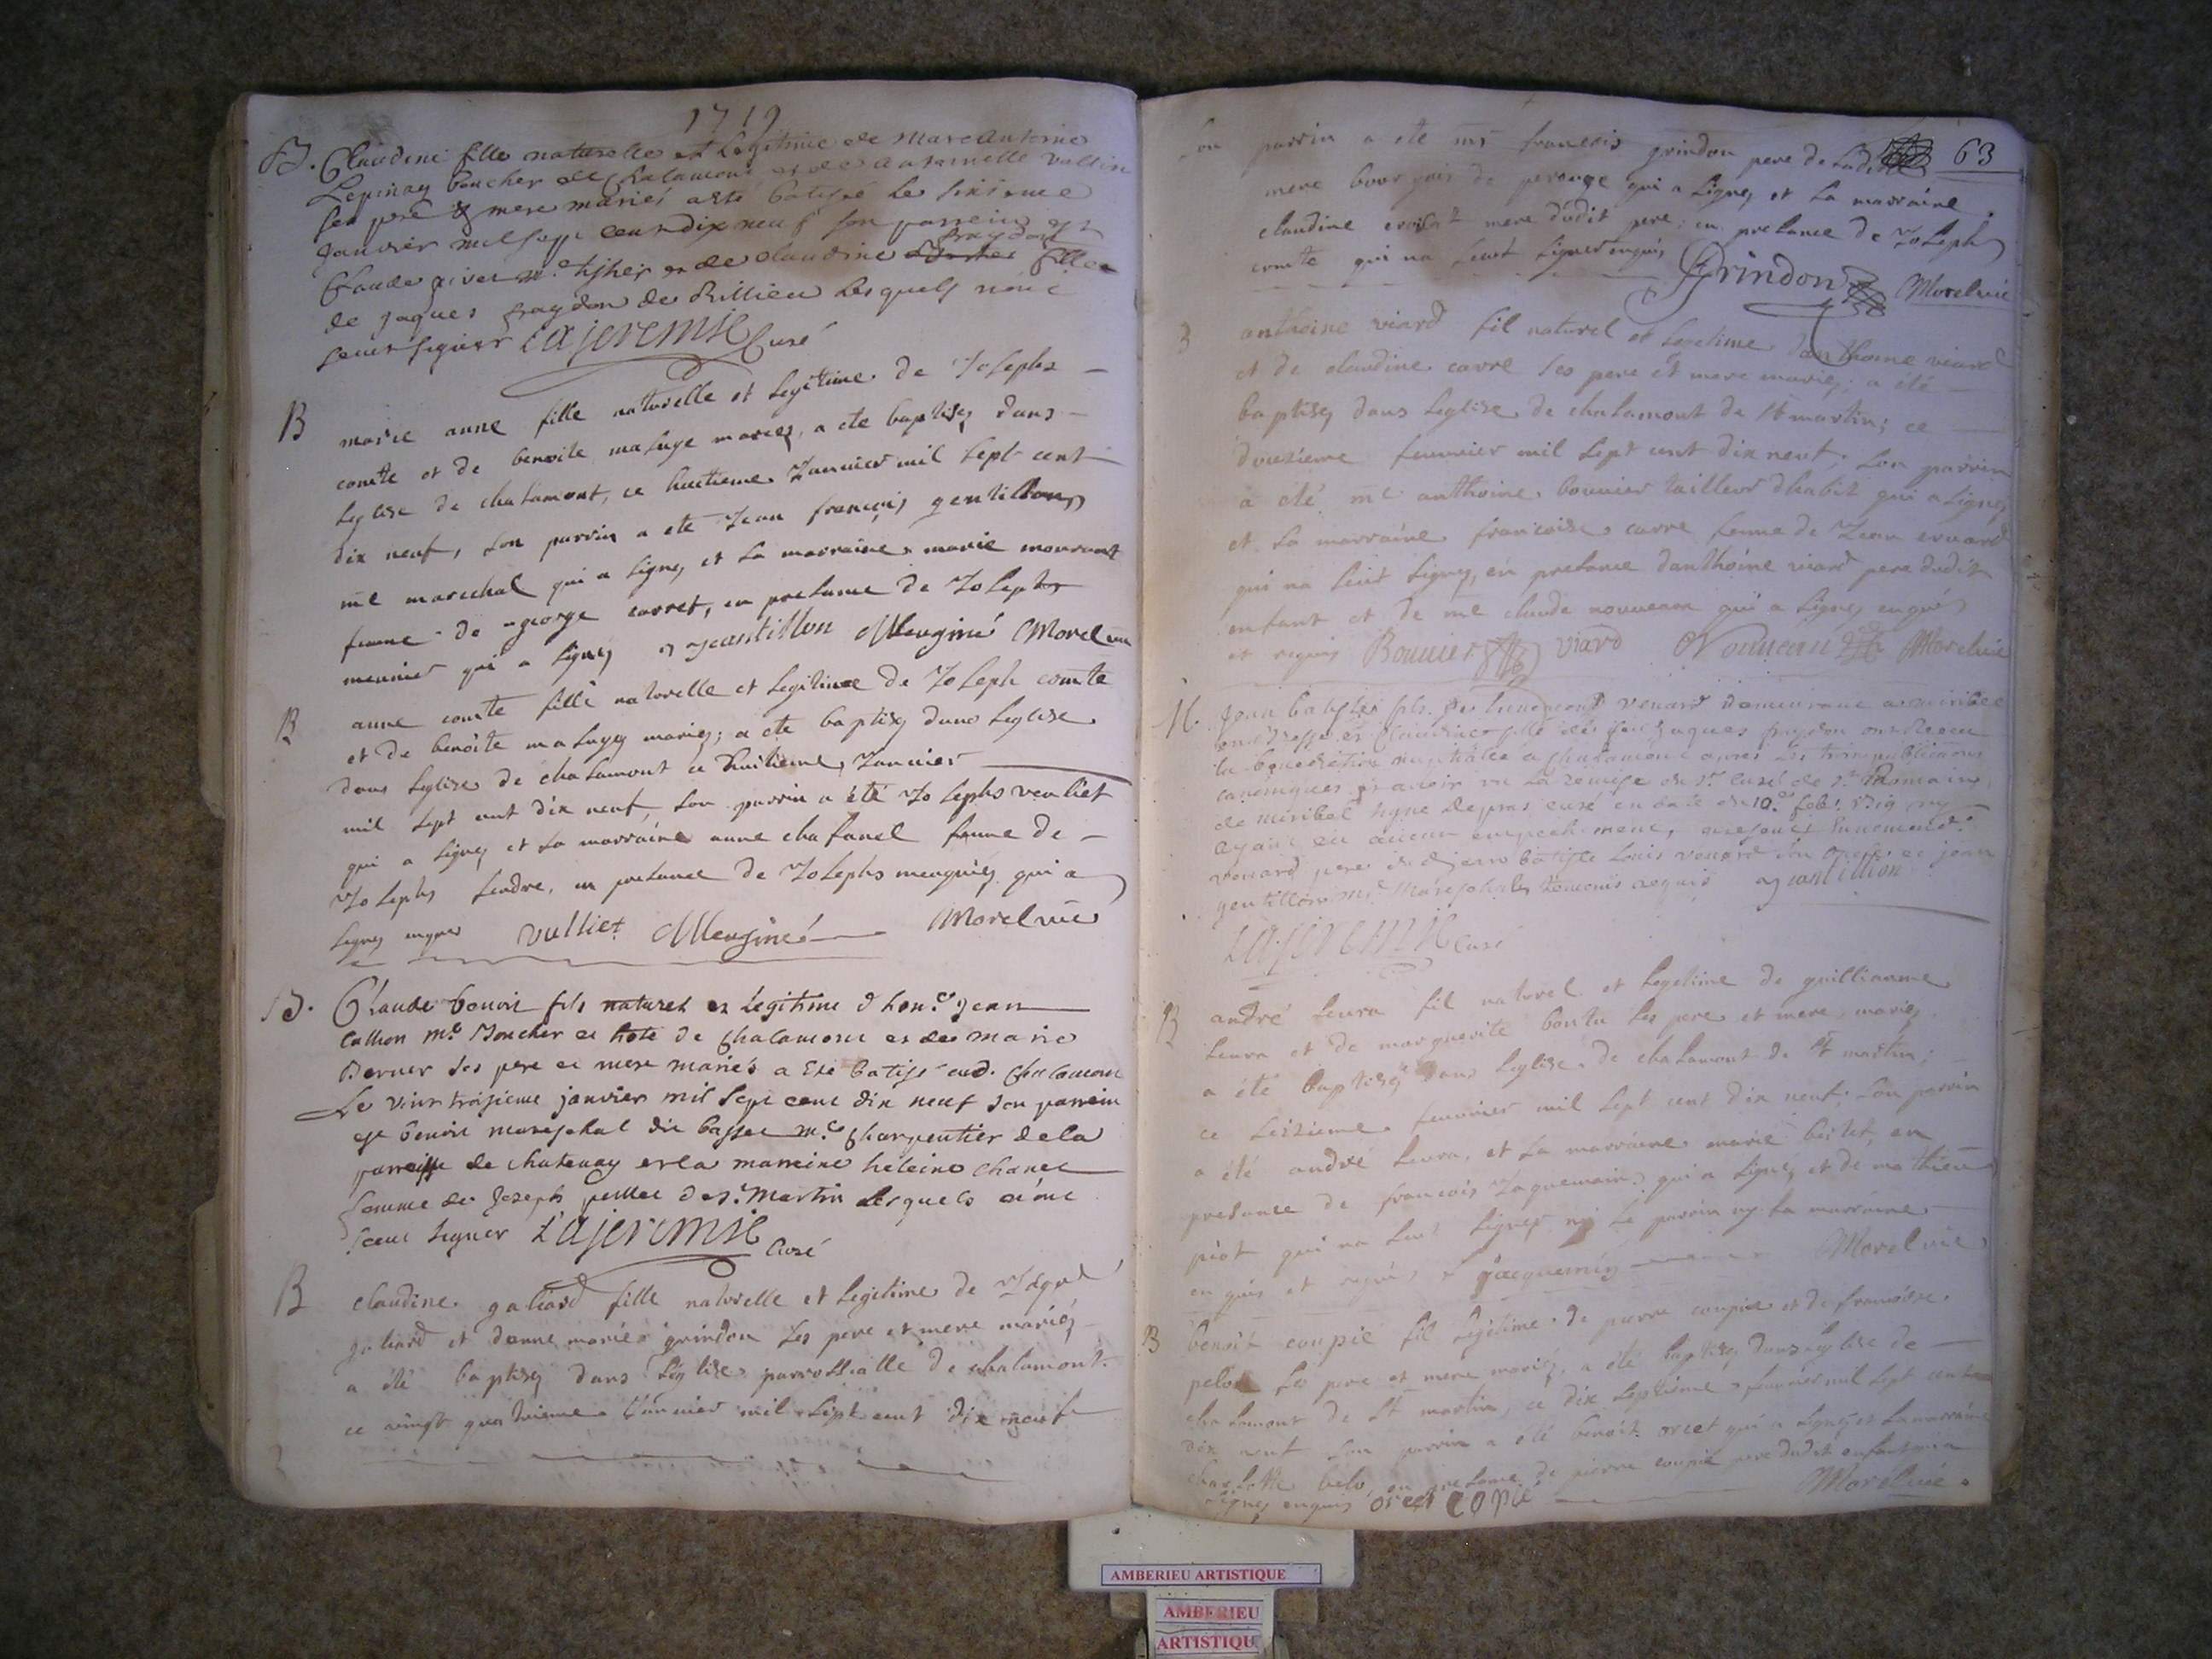 1719
B. Claudine fille naturelle et Legitime de Marc Antoine
Lepinay boucher de Chalamont et de Antoinette Vullin
ses pere & mere mariés a esté batisé le sixieme
Janvier mil sept cent dix neuf son parrein est
Claude givet m.e tisher et de claudine fraydon fille
de jaques fraydon de Rillieu lesquels n'ont
sceut signer Lajeremie Curé
B marie anne fille naturelle et legitime de Joseph
comte et de benoite matuge maries, a ete baptisez dans
leglise de chalamont, ce huitieme Janvier mil sept cent
dix neuf, son parrin a ete Jean francois gentillon
me marechal qui a signe, et la marraine marie mourant
femme de george carret, en presance de Joseph
meunier qui a signez J gantillon Meuginé Morel vic
B anne comte fille naturelle et legitime de Joseph comte
et de benoite matugez mariez; a ete baptisez dans leglise
dans leglise de chalamont ce huitieme Janvier
mil sept cent dix neuf, son parrin a été Joseph veuliet
qui a signez et la marraine anne chafanel femme de
Joseph fendre, en presance de Joseph meugniez qui a
signez enquis vulliet Meuginé Morel vic
B. Claude benoit fils naturel et legitime d hon.e jean
Callion m.e Boucher et hote de Chalamont et de marie
Berner ses pere et mere mariés a esté batisé aud. Chalamont
Le vint troisieme janvier mil sept cent dix neuf son parrein
est benoit mareschal dit basset m.e charpentier de la
parroisse de chatenay et la marreine heleine chanel
femme de Joseph peillet de s.t Martin lesquels n'ont
sceut signer Lajeremie Curé
B claudine galiard fille naturelle et legitime de
galiard et danne marie grindon ses pere et mere mariéz
a été baptisez dans léglise parrossialle de chalamont
ce vingt quatrieme Janvier mil sept cent dix neuf
63
son parrin a ete mr francois grindon pere de ladite
mere bourgois de perouge qui a signez et la marraine
claudine mere dudit pere; en presance de Joseph
comte qui na sceut signer enquis Grindon Morel vic
B anthoine viard fil naturel et legetime danthoine viard
et de claudine carre ses pere et mere mariez; a été
baptisez dans leglise de chalamont de st martin; ce
douzieme feuvrier mil sept cent dix neuf; son parrin
a été me anthoine bouvier tailleur dhabit qui a signez
et la marraine francoise carre femme de Jean evrard
qui na sceut signez, en presance danthoine viard pere dudit
enfant et de me claude nouveau qui a signez enquis
et requis Bouvier viard Nouveau Morel vic
M. Jean batiste fils de venard demeurant a miribel
et Claudine fille de feu Jaques fraydon ont receu
la benediction nuptialle a chalamont apres les trois publications
canoniques et avoir vu la remise du s.r curé de s.t Romain
de miribel signe depras curé en date du 10.e feb. 1719 ny
ayant eu aucun empechement, presents
venard pere de jean batiste Louis venard son et jean
gentillon m.e mareschal temoins requis J gantillon
Lajeremie Curé
B andré leura fil naturel et legetime de guilliaume
leura et de marguerite bontu ses pere et mere, mariez
a été baptisez dans leglise de chalamont de st martin;
ce seizieme feuvrier mil sept cent dix neuf; son parrin
a été andré leura, et la marraine marie en
presance de francois Jaquemain qui a signez et de mathieu
piot qui na sceut signer ny le parrin ny la marraine
enquis et requis Jacquemin Morel vic
B benoit coupié fil legitime de pierre coupié et de francoise
pelo ses pere et mere mariéz, a été baptisez dans leglise de
chalamont de st martin, ce dix septieme feuvrier mil sept cent
dix neuf son parrin a été benoit orcet qui a signez et la marraine
charlotte belo, en presance de pierre coupié pere dudit enfant
signez enquis orcet copié Morel vic
AMBERIEU ARTISTIQUE
AMBERIEU
ARTISTIQU